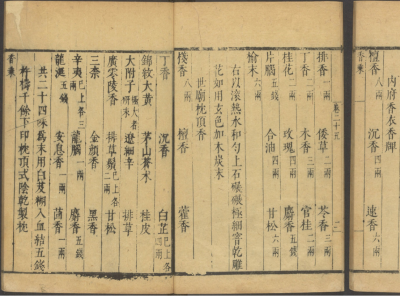 內府香衣香牌
檀香八兩 沉香四兩 速香六兩
排香一兩 倭草二兩 苓香三兩
丁香二兩 木香三兩 官桂二兩
桂花二兩 玫瑰四兩 麝香五錢
片腦五錢 合油四兩 甘松六兩
榆末六兩
右以滾熱水和勻上石碾碾極細窨乾雕
花如用玄色加木炭末
世廟枕頂香
棧香八兩 檀香 藿香
丁香 沉香 白芷已上各四兩
錦紋大黃 茅山蒼朮 桂皮
大附子極大者研末 遼細辛 排草
廣零陵香 排草鬚已上各二兩 甘松
三柰 金顏香 黑香
辛夷已上各三兩 龍腦一兩 麝香五錢
龍涎五錢 安息香一兩 茴香一兩
共二十四味為末用白芨糊入血結五錢
杵擣千餘下印枕頂式陰乾製枕
香乘
卷二十五